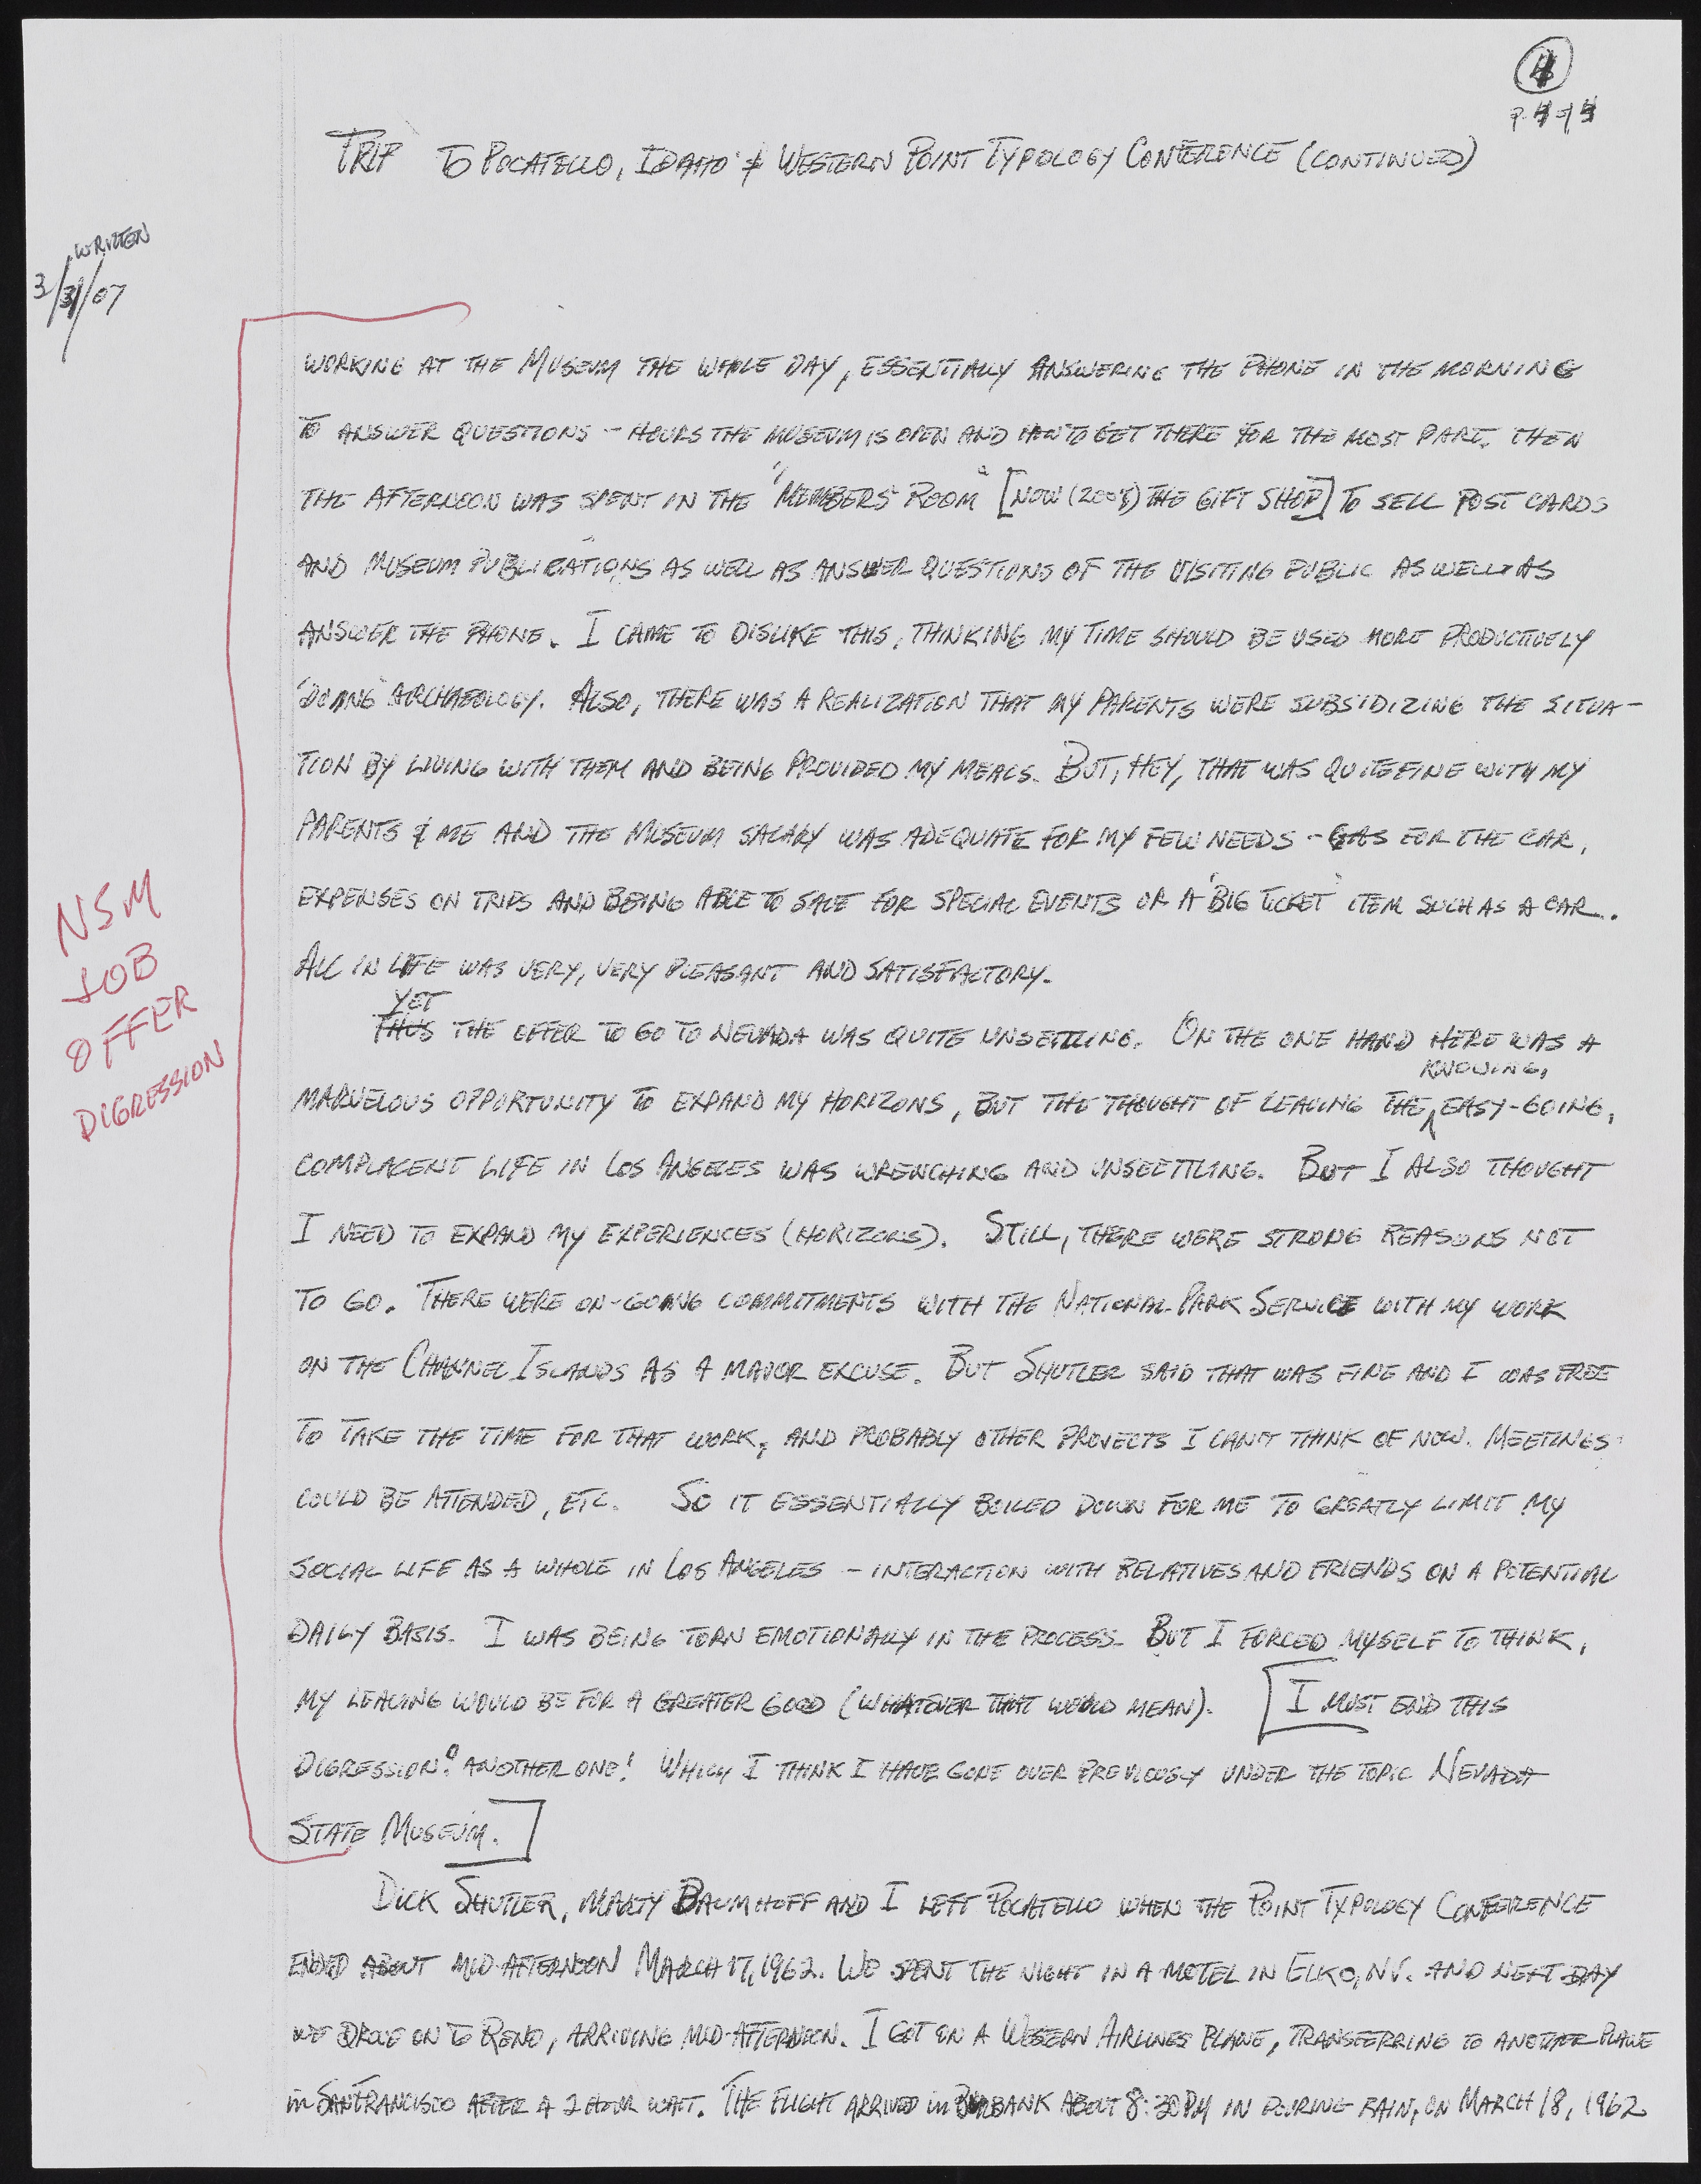 4
P. 4
TRIP TO POCATELLO, IDAHO & WESTERN POINT TYPOLOGY CONFERENCE (CONTINUED)
WRITTEN
3/31/07
WORKING AT THE MUSEUM THE WHOLE DAY, ESSENTIALLY ANSWERING THE PHONE IN THE MORNING
TO ANSWER QUESTIONS - HOURS THE MUSEUM IS OPEN AND HOW TO GET THERE FOR THE MOST PART. THEN
THE AFTERNOON WAS SPENT IN THE "MEMBERS' ROOM" [NOW (2008) THE GIFT SHOP] TO SELL POST CARDS
AND MUSEUM PUBLICATIONS AS WELL AS ANSWER QUESTIONS OF THE VISITING PUBLIC AS WELL AS
ANSWER THE PHONE. I CAME TO DISLIKE THIS, THINKING MY TIME SHOULD BE USED MORE PRODUCTIVELY
"DOING" ARCHAEOLOGY. ALSO, THERE WAS A REALIZATION THAT MY PARENTS WERE SUBSIDIZING THE SITUA-
TION BY LIVING WITH THEM AND BEING PROVIDED MY MEALS. BUT, HEY, THAT WAS QUITE FINE WITH MY
PARENTS & ME AND THE MUSEUM SALARY WAS ADEQUATE FOR MY FEW NEEDS - GAS FOR THE CAR,
EXPENSES ON TRIPS AND BEING ABLE TO SAVE FOR SPECIAL EVENTS OR A "BIG TICKET" ITEM SUCH AS A CAR.
ALL IN LIFE WAS VERY, VERY PLEASANT AND SATISFACTORY.
YET
THUS THE OFFER TO GO TO NEVADA WAS QUITE UNSETTLING. ON THE ONE HAND HERE WAS A
KNOWING,
MARVELOUS OPPORTUNITY TO EXPAND MY HORIZONS, BUT THE THOUGHT OF LEAVING THE EASY-GOING,
COMPLACENT LIFE IN LOS ANGELES WAS WRENCHING AND UNSEETTLING. BUT I ALSO THOUGHT
I NEED TO EXPAND MY EXPERIENCES (HORIZONS). STILL, THERE WERE STRONG REASONS NOT
TO GO. THERE WERE ON-GOING COMMITMENTS WITH THE NATIONAL PARK SERVICE WITH MY WORK
ON THE CHANNEL ISLANDS AS A MAJOR EXCUSE. BUT SHUTLER SAID THAT WAS FINE AND I WAS FREE
TO TAKE THE TIME FOR THAT WORK, AND PROBABLY OTHER PROJECTS I CAN'T THINK OF NOW. MEETINGS
COULD BE ATTENDED, ETC. SO IT ESSENTIALLY BOILED DOWN FOR ME TO GREATLY LIMIT MY
SOCIAL LIFE AS A WHOLE IN LOS ANGELES - INTERACTION WITH RELATIVES AND FRIENDS ON A POTENTIAL
DAILY BASIS. I WAS BEING TORN EMOTIONALLY IN THE PROCESS. BUT I FORCED MYSELF TO THINK,
MY LEAVING WOULD BE FOR A GREATER GOOD (WHATEVER THAT WOULD MEAN). [I MUST END THIS
DIGRESSION! ANOTHER ONE! WHICH I THINK I HAVE GONE OVER PREVIOUSLY UNDER THE TOPIC NEVADA
STATE MUSEUM.]
NSM
JOB
OFFER
DIGRESSION
DICK SHUTLER, MARTY BAUMHOFF AND I LEFT POCATELLO WHEN THE POINT TYPOLOGY CONFERENCE
ENDED ABOUT MID-AFTERNOON MARCH 17, 1962. WE SPENT THE NIGHT IN A MOTEL IN ELKO, NV. AND NEXT DAY
WE DROVE ON TO RENO, ARRIVING MID-AFTERNOON. I GOT ON A WESTERN AIRLINES PLANE, TRANSFERRING TO ANOTHER PLANE
in SAN FRANCISCO AFTER A 2 HOUR WAIT. THE FLIGHT ARRIVED in BURBANK ABOUT 8:30 PM IN POURING RAIN, ON MARCH 18, 1962